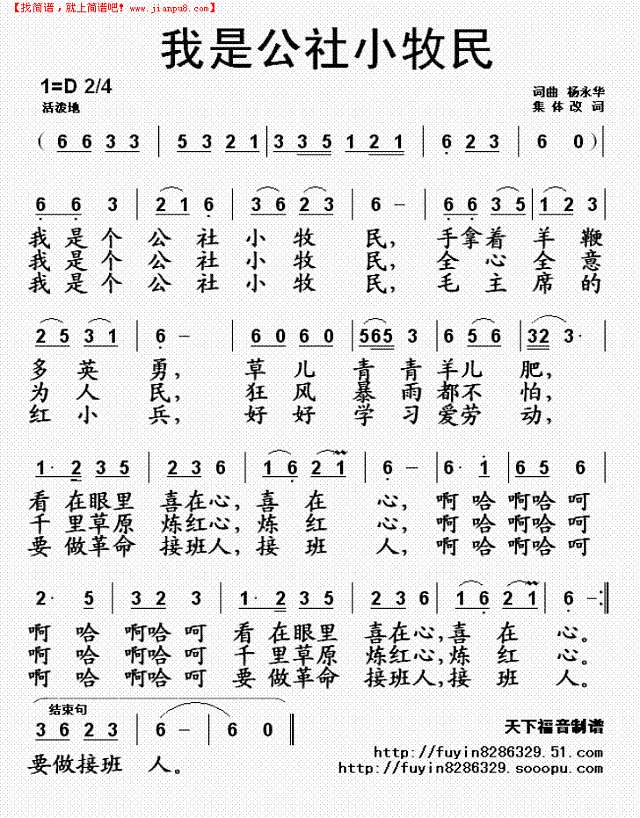 【找简谱，就上简谱吧! www.jianpu8.com】
我是公社小牧民
1=D 2/4
活泼地
词曲 杨永华
集体改词
( 6 6 3 3 | 5 3 2 1 | 3 3 5 1 2 1 | 6 2 3 | 6 0 ) |
6 6 3 | 2 1 6 | 3 6 2 3 | 6 - | 6 6 3 5 | 1 2 3 |
我 是 个 公 社 小 牧 民， 手拿着 羊 鞭
我 是 个 公 社 小 牧 民， 全 心 全 意
我 是 个 公 社 小 牧 民， 毛 主 席 的
2 5 3 1 | 6 - | 6 0 6 0 | 565 3 | 6 5 6 | 32 3· |
多 英 勇， 草 儿 青 青 羊儿 肥，
为 人 民， 狂 风 暴 雨 都不 怕，
红 小 兵， 好 好 学 习 爱劳 动，
1· 2 3 5 | 2 3 6 | 1 6 2 1 | 6 - | 6· 1 | 6 5 |
看 在眼里 喜在心，喜 在 心， 啊 哈 啊哈 呵
千 里草原 炼红心，炼 红 心， 啊 哈 啊哈 呵
要 做革命 接班人，接 班 人， 啊 哈 啊哈 呵
2· 5 | 3 2 3 | 1· 2 3 5 | 2 3 6 | 1 6 2 1 | 6 - :||
啊 哈 啊哈 呵 看 在眼里 喜在心，喜 在 心。
啊 哈 啊哈 呵 千 里草原 炼红心，炼 红 心。
啊 哈 啊哈 呵 要 做革命 接班人，接 班 人。
结束句
3 6 2 3 | 6 - | 6 0 ||
要做接班 人。
天下福音制谱
http://fuyin8286329.51.com
http://fuyin8286329.sooopu.com